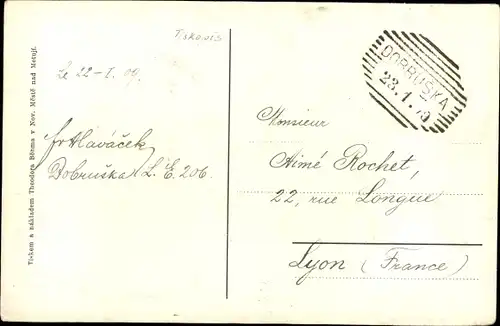 Tiskopis
Le 22-I. 09.
Fr Hlaváček
Dobruška č. 206.
DOBRUŠKA
23.1.
Monsieur
Aimé Rochet,
22, rue Longue
Lyon (France)
Tiskem a nákladem Theodora Böhma v Nov. Městě nad Metují.